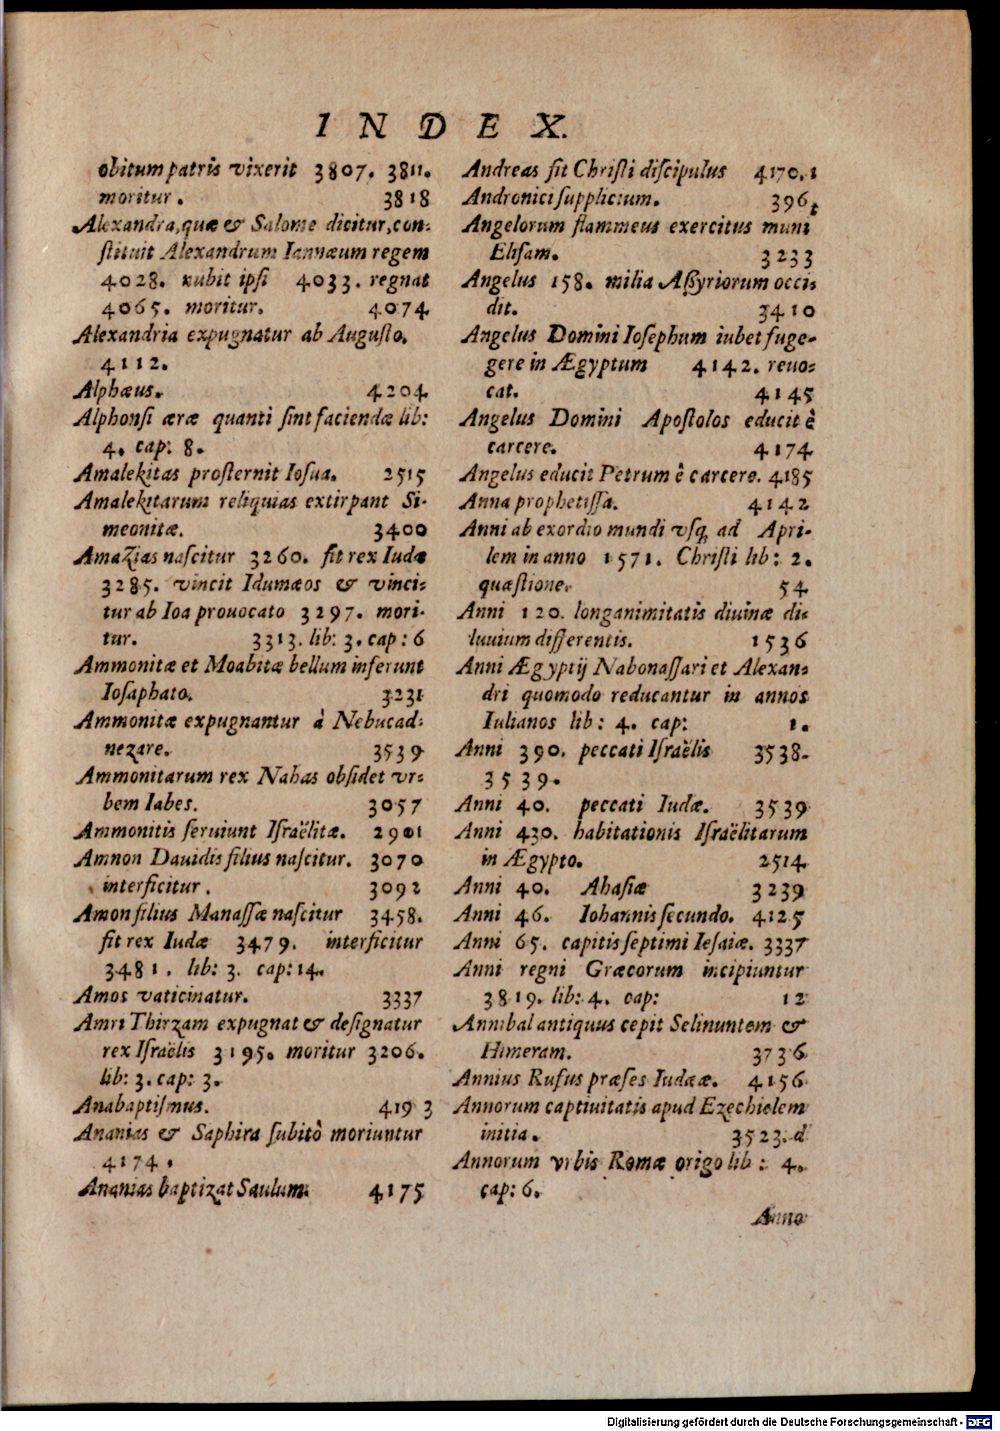 INDEX.
obitum patris vixerit 3807. 3811.
moritur. 3818
Alexandra, quæ & Salome dicitur, con-
ſtituit Alexandrum Iannæum regem
4028. nubit ipſi 4033. regnat
4065. moritur. 4074
Alexandria expugnatur ab Auguſto.
4112.
Alphæus. 4204
Alphonſi æræ quanti ſint faciendæ lib:
4. cap: 8.
Amalekitas proſternit Ioſua. 2515
Amalekitarum reliquias extirpant Si-
meonitæ. 3400
Amazias naſcitur 3260. fit rex Iudæ
3285. vincit Idumæos & vinci-
tur ab Ioa prouocato 3297. mori-
tur. 3313. lib: 3. cap: 6
Ammonitæ et Moabitæ bellum inferunt
Ioſaphato. 3231
Ammonitæ expugnantur à Nebucad-
nezare. 3539
Ammonitarum rex Nahas obſidet vr-
bem Iabes. 3057
Ammonitis ſeruiunt Iſraëlitæ. 2901
Amnon Dauidis filius naſcitur. 3070
interficitur. 3092
Amon filius Manaſſæ naſcitur 3458.
fit rex Iudæ 3479. interficitur
3481. lib: 3. cap: 14.
Amos vaticinatur. 3337
Amri Thirzam expugnat & deſignatur
rex Iſraëlis 3195. moritur 3206.
lib: 3. cap: 3.
Anabaptiſmus. 4193
Ananias & Saphira ſubitò moriuntur
4174.
Ananias baptizat Saulum. 4175
Andreas fit Chriſti diſcipulus 4170.1
Andronici ſupplicium. 396
Angelorum flammeus exercitus muni
Eliſam. 3233
Angelus 158. milia Aßyriorum occi-
dit. 3410
Angelus Domini Ioſephum iubet fuge-
gere in Ægyptum 4142. reuo-
cat. 4145
Angelus Domini Apoſtolos educit è
carcere. 4174
Angelus educit Petrum è carcere. 4185
Anna prophetiſſa. 4142
Anni ab exordio mundi vſq, ad Apri-
lem in anno 1571. Chriſti lib: 2.
quæſtione. 54
Anni 120. longanimitatis diuinæ di-
luuium differentis. 1536
Anni Ægyptij Nabonaſſari et Alexan-
dri quomodo reducantur in annos
Iulianos lib: 4. cap: 1.
Anni 390. peccati Iſraëlis 3538.
3539.
Anni 40. peccati Iudæ. 3539
Anni 430. habitationis Iſraëlitarum
in Ægypto. 2514
Anni 40. Ahaſiæ 3239
Anni 46. Iohannis ſecundo. 4125
Anni 65. capitis ſeptimi Ieſaiæ. 3337
Anni regni Græcorum incipiuntur
3819. lib: 4. cap: 12
Annibal antiquus cepit Selinuntem &
Himeram. 3736
Annius Rufus præſes Iudææ. 4156
Annorum captiuitatis apud Ezechielem
initia. 3523. d
Annorum vrbis Romæ origo lib: 4.
cap: 6.
Anno
Digitalisierung gefördert durch die Deutsche Forschungsgemeinschaft - DFG